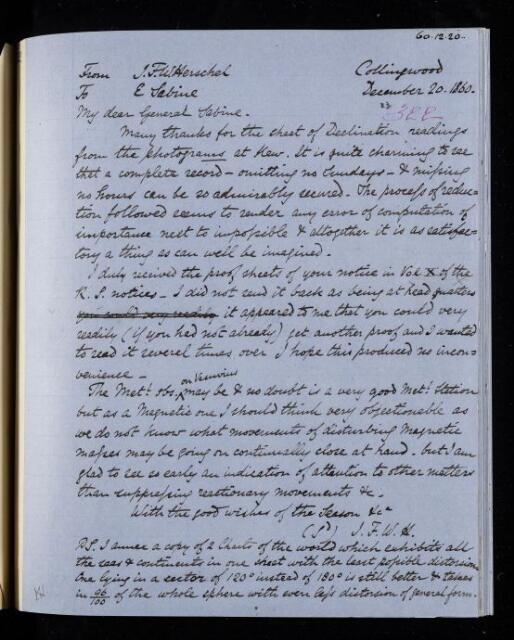 60.12.20.
From J.F.W. Herschel Collingwood
To E Sabine December 20. 1860.
My dear General Sabine.
Many thanks for the sheet of Declination readings
from the photograms at Kew. It is quite charming to see
that a complete record – omitting no Sundays – & missing
no hours can be so admirably secured. The process of reduc=
tion followed seems to render any error of computation of
importance next to impossible & altogether it is as satisfac=
tory a thing as can well be imagined.
I duly received the proof sheets of your notice in Vol X of the
R. S. notices – I did not send it back as being at head quarters
you could very readily it appeared to me that you could very
readily (if you had not already) get another proof and I wanted
to read it several times over I hope this produced no incon=
venience –
The Metl. obs. on Vesuvius may be & no doubt is a very good Metl. Station
but as a Magnetic one I should think very objectionable as
we do not know what movements of disturbing Magnetic
masses may be going on continually close at hand. but I am
glad to see so early an indication of attention to other matters
than suppressing reactionary movements &c.
With the good wishes of the Season &c
(Sd) J. F. W. H.
P.S. I annex a copy of 2 Charts of the world which exhibits all
the seas & continents in one sheet with the least possible distorsion
One lying in a sector of 120° instead of 180° is still better & takes
in 96/100 of the whole sphere with even less distorsion of general form.